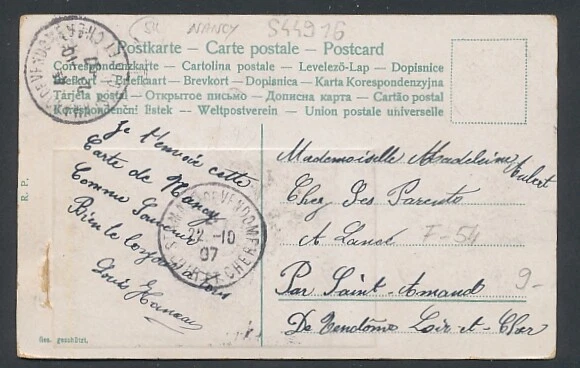 54 NANCY S44916
Postkarte – Carte postale – Postcard
Correspondenzkarte – Cartolina postale – Levelező-Lap – Dopisnice
Brefkort – Briefkaart – Brevkort – Dopisnica – Karta Korespondenzyjna
Tarjeta postal – Открытое письмо – Дописна карта – Cartão postal
Korespondenční listek – Weltpostverein – Union postale universelle
R. P.
Je t'envoie cette
Carte de Nancy
Comme Souvenir
Bien le bonjour à tous
Louis
Mademoiselle Madeleine Aubert
Chez Ses Parents
A Lancé
F-54
9-
Par Saint-Amand
De Vendôme Loir-et-Cher
ST AMAND-DE-VENDOME
22-10
07
LOIR-ET-CHER
Ges. geschützt.